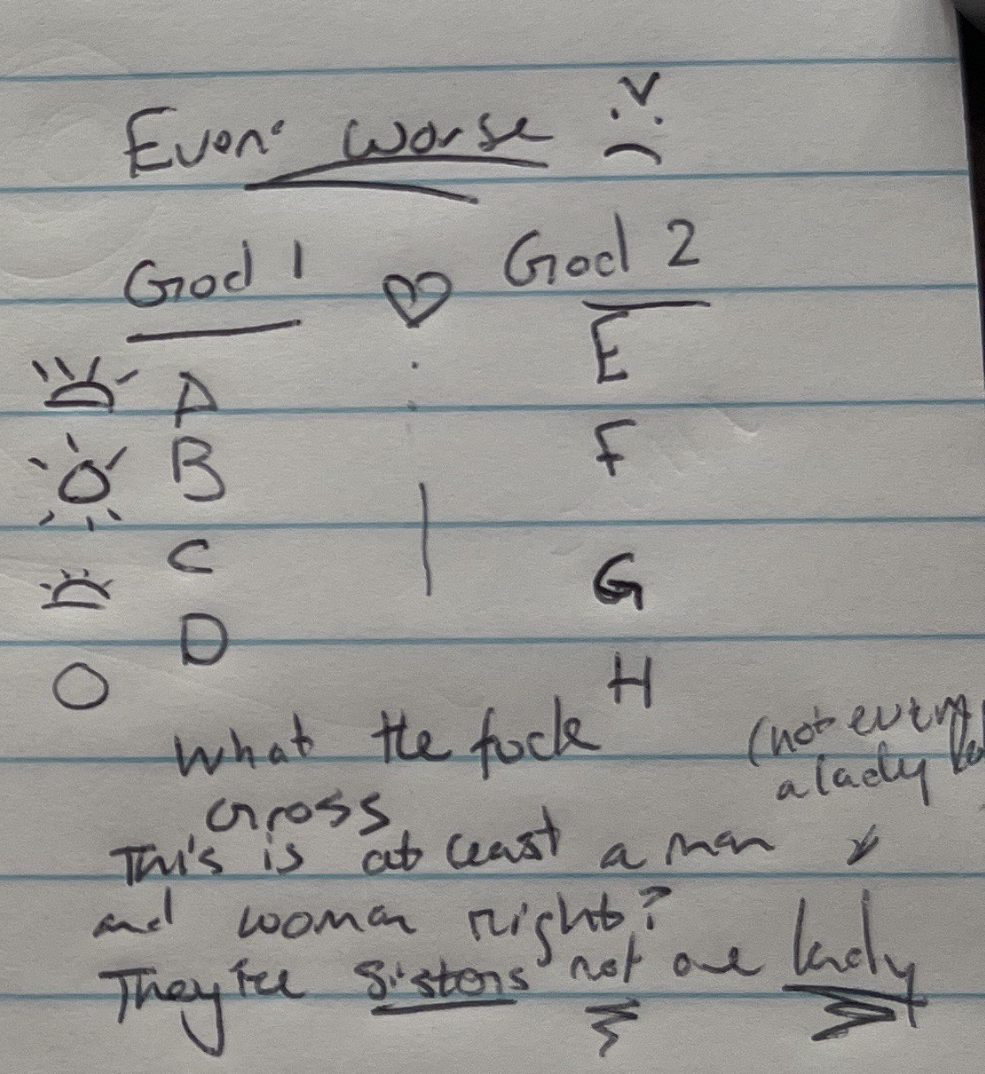 Even worse
God 1 God 2
A E
B F
C G
D H
what the fuck
Gross
(not even
a lady
This is at least a man
and woman right?
They're sisters not one lady